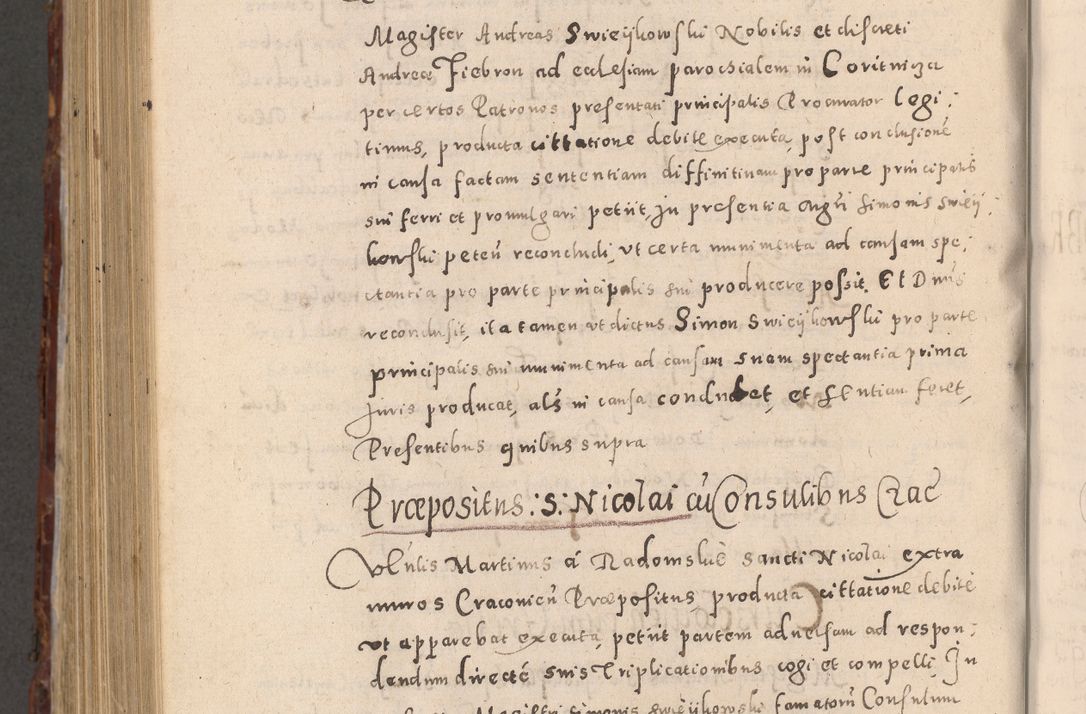 Magister Andreas Swieijkowski Nobilis et discreti
Andreæ Fiebron ad ecclesiam parochialem in Coritnicza
per certos Patronos presentati principalis Procurator legi:
timus, producta cittatione debite executa, post conclusionē
in causa factam sententiam diffinitivam pro parte principalis
sui ferri et promulgari petiit, In presentia Mgri Simonis Swieij:
kowski peteñ reconcludi, ut certa munimenta ad causam spe:
ctantia pro parte principalis sui producere possit. Et Dnus
reconclusit, ita tamen ut dictus Simon Swieijkowski pro parte
principalis sui munimenta ad causam suam spectantia prima
Juris producat, als in causa concludet, et sententiam feret,
Presentibus quibus supra
Præpositus :S: Nicolai cū Consulibus Crac
Vblñlis Martinus á Radomskie sancti Nicolai extra
muros Cracovieñ Præpositus producta cittatione debite
ut apparebat executa, petiit partem adversam ad respon:
dendum directé suis Triplicationibus cogi et compelli, In
Magistri Simonis Swieijkowski famatorū Consulum